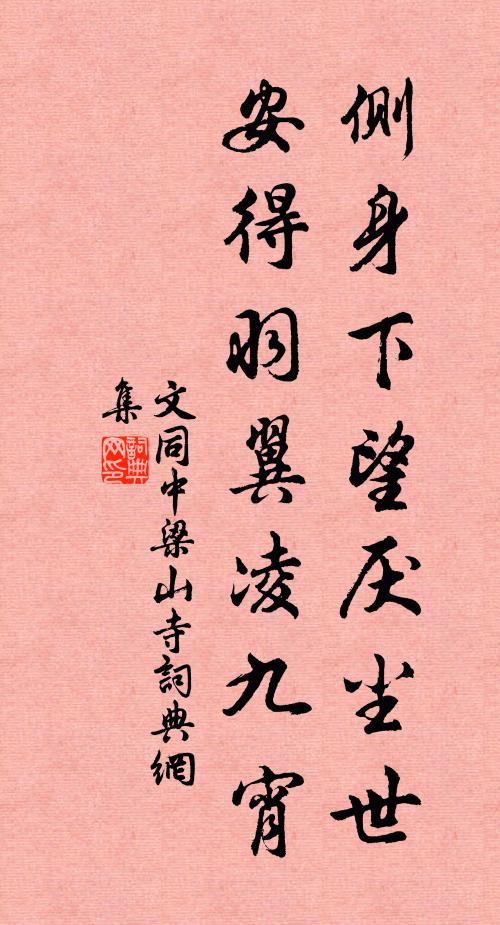 側身下望厌尘世
安得羽翼凌九宵
文同中梁山寺詞典網
集
詞典网印